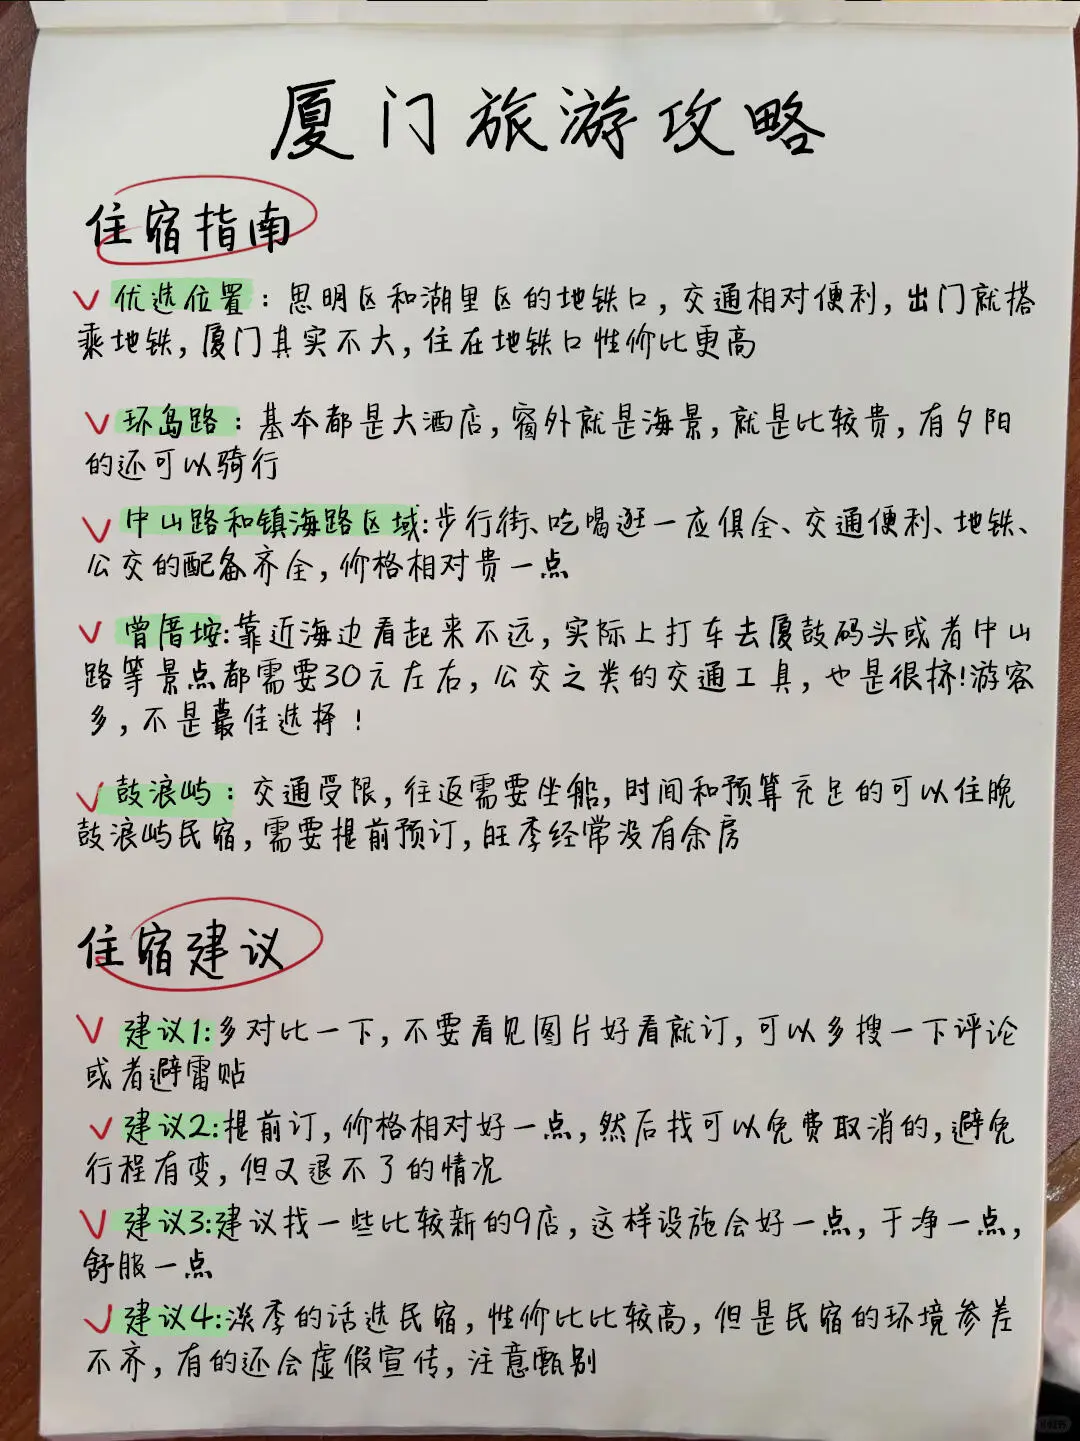 厦门旅游攻略
住宿指南
优选位置：思明区和湖里区的地铁口，交通相对便利，出门就搭
乘地铁，厦门其实不大，住在地铁口性价比更高
环岛路：基本都是大酒店，窗外就是海景，就是比较贵，有夕阳
的还可以骑行
中山路和镇海路区域：步行街、吃喝逛一应俱全、交通便利、地铁、
公交的配备齐全，价格相对贵一点
曾厝垵：靠近海边看起来不远，实际上打车去厦鼓码头或者中山
路等景点都需要30元左右，公交之类的交通工具，也是很挤！游客
多，不是最佳选择！
鼓浪屿：交通受限，往返需要坐船，时间和预算充足的可以住晚
鼓浪屿民宿，需要提前预订，旺季经常没有余房
住宿建议
建议1：多对比一下，不要看见图片好看就订，可以多搜一下评论
或者避雷贴
建议2：提前订，价格相对好一点，然后找可以免费取消的，避免
行程有变，但又退不了的情况
建议3：建议找一些比较新的9店，这样设施会好一点，干净一点，
舒服一点
建议4：淡季的话选民宿，性价比比较高，但是民宿的环境参差
不齐，有的还会虚假宣传，注意甄别
小红书